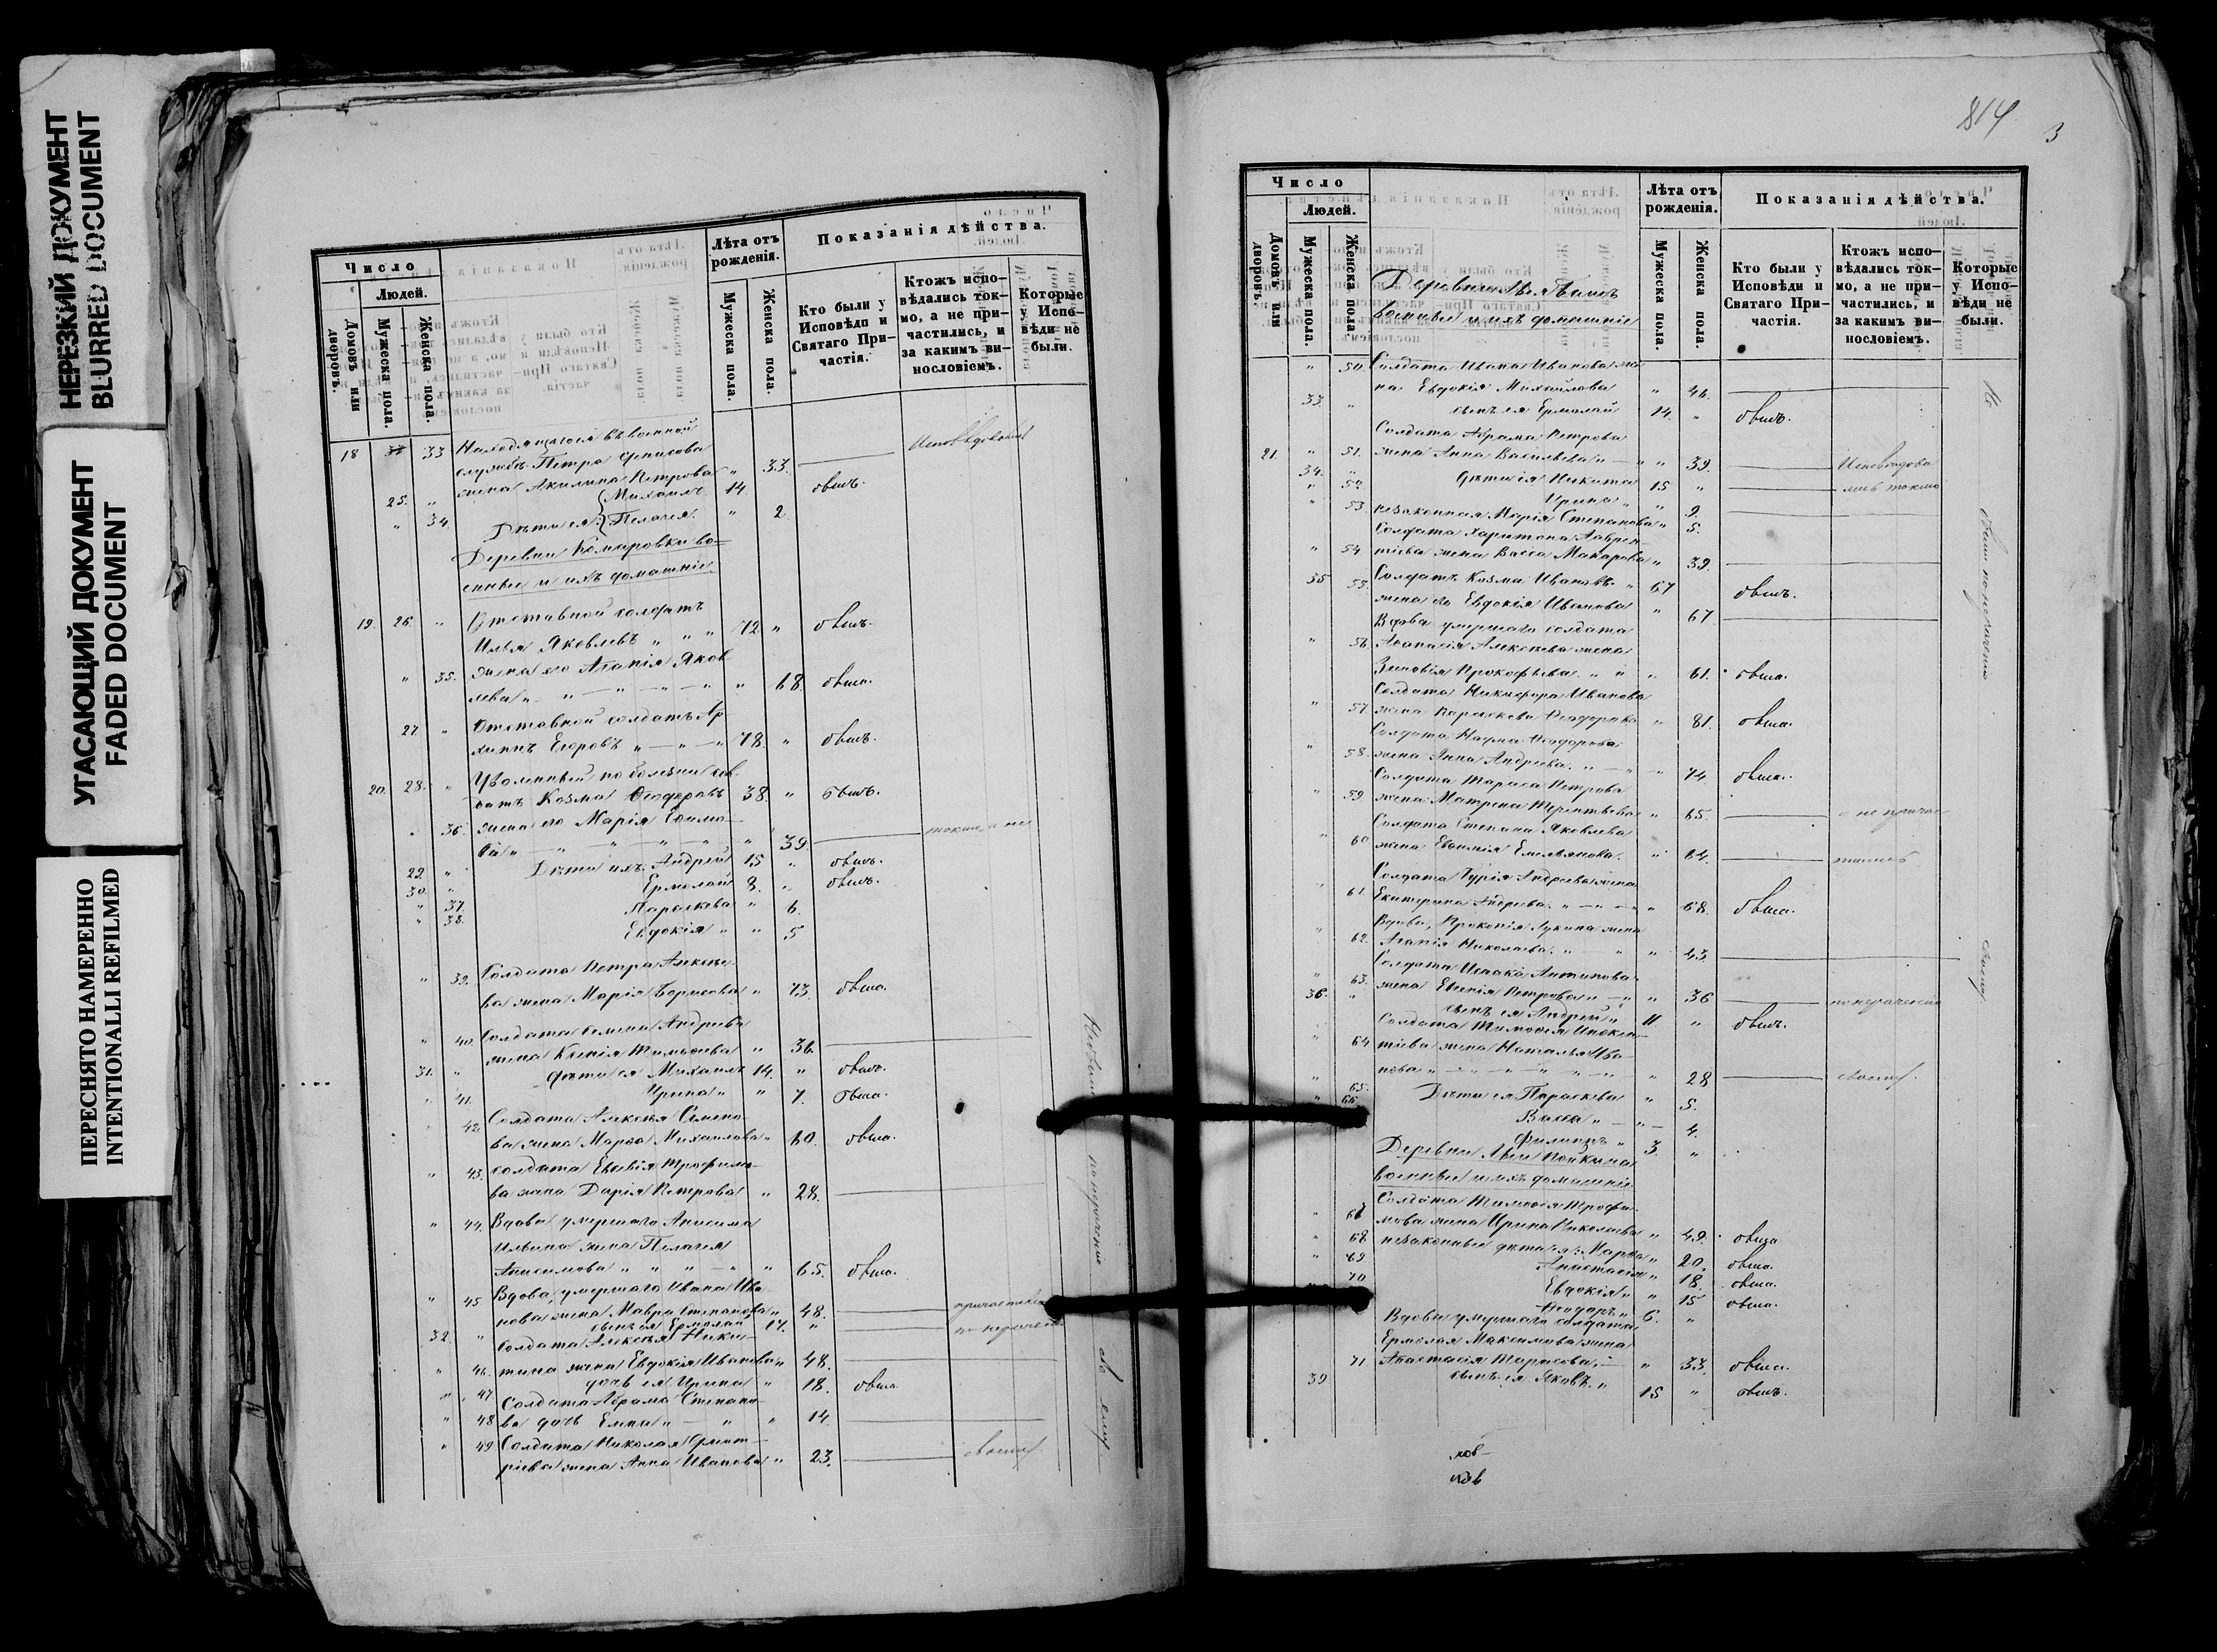 НЕРЕЗКИЙ ДОКУМЕНТ
BLURRED DOCUMENT
УГАСАЮЩИЙ ДОКУМЕНТ
FADED DOCUMENT
ПЕРЕСНЯТО НАМЕРЕННО
INTENTIONALLI REFILMED
Число
Людей.
Домовъ или дворовъ.
Мужеска пола.
Женска пола.
Лѣта отъ рожденія.
Мужеска пола.
Женска пола.
Показанія дѣйства.
Кто были у Исповѣди и Святаго Причастія.
Ктожъ исповѣдались токмо, а не причастились, и за какимъ винословіемъ.
Которые у Исповѣди не были.
18 33 Находящагося въ военной
службѣ Петра Денисова
жена Акилина Петрова " 33.
25. " Михаилъ 14. былъ.
" 34. Дѣти ея: Пелагея. " 2
Деревни Комаровки во-
енные и ихъ домашніе.
19. 26. " Отставной солдатъ
Илья Яковлевъ " " " 72 " былъ.
" 35. Жена его Агапія Яков-
лева " 68. была.
27. " Отставной солдатъ Ар-
хиппъ Егоровъ 78. " былъ.
20. 28. " Уволенный по болезни сол-
датъ Козма Ѳеодоровъ 38. " былъ.
" 36. жена его Марія Ефимо-
ва " 39. токмо, а не
29. " Дѣти ихъ: Андрей 15 " былъ.
30. " Ермолай 8. " былъ.
" 37. Параскева " 6.
" 38. Евдокія " " 5
" 39. Солдата Петра Алексѣе-
ва жена Марія Борисова " 73. была.
" 40. Солдата Семена Андреева
жена Ксенія Тимоѳеева " 36.
31. " дѣти ея Михаилъ 14. " былъ.
" 41. Ирина " " 7. была.
" 42. Солдата Алексѣя Семено-
ва жена Марѳа Михаилова " 60. была.
" 43. солдата Евсевія Трофимо-
ва жена Дарія Петрова " 28.
" 44. Вдова умершаго Анисима
Ильина жена Пелагея
Анисимова " " " " 65. была.
" 45 Вдова, умершаго Ивана Ива-
нова жена Мавра Степанова " 48.
32. " сынъ ея Ермолай 17. "
Солдата Алексѣя Ники-
" 46. тина жена Евдокія Иванова " 48.
" 47. дочь ея Ирина " 18. была
Солдата Абрама Степано-
" 48 ва дочь Елена " " " 14.
" 49 Солдата Николая Дмит-
ріева жена Анна Иванова " 23. своему
814
3
Число
Людей.
Домовъ или дворовъ.
Мужеска пола.
Женска пола.
Лѣта отъ рожденія.
Мужеска пола.
Женска пола.
Показанія дѣйства.
Кто были у Исповѣди и Святаго Причастія.
Ктожъ исповѣдались токмо, а не причастились, и за какимъ винословіемъ.
Которые у Исповѣди не были.
военные и ихъ домашніе
" 50. Солдата Ивана Иванова же-
на Евдокія Михайлова " 46.
33. " сынъ ея Ермолай 14. " былъ.
Солдата Абрама Петрова
21. " 51. жена Анна Васильева " " 39.
34. " Дѣти ея Никита 15 "
" 52. Ирина " " 9.
" 53. незаконная Марія Степанова " 5.
Солдата Харитона Лаврен-
" 54 тіева жена Васса Макарова " 39.
35 Солдатъ Козма Ивановъ " 67 былъ.
55. жена его Евдокія Иванова " 67
Вдова умершаго солдата
" 56. Аѳанасія Алексѣева жена
Зиновія Прокофьева " " " 61. была.
Солдата Никифора Иванова
" 57. жена Параскева Ѳеодорова " 81. была.
Солдата Наума Ѳеодорова
" 58. жена Анна Андреева " 74. была.
Солдата Тараса Петрова
" 59 жена Матрена Терентьева " 65. а не причас-
Солдата Степана Яковлева
" 60 жена Евѳимія Емельянова. " 24.
Солдата Гурія Андреева жена
" 61 Екатерина Андреева. " 68. была.
Вдова, Прокопія Лукина жена
" 62. Агапія Николаева. " " 43.
Солдата Исаака Антипова
" 63. жена Евгенія Петрова " " 36
36. " сынъ ея Андрей " 11. " былъ.
Солдата Тимоѳея Инокен-
" 64 тіева жена Наталья Ива-
нова " 28 своему
" 65. Дѣти ея Параскева " 5.
" 66. Васса " 4.
Филиппъ " 3. "
военные и ихъ домашніе
Солдата Тимоѳея Трофи-
" 67 мова жена Ирина Николаева " 49. была
" 68 незаконные дѣти ея: Марѳа " 20. была.
" 69 Анастасія " 18. была.
" 70 Евдокія " " 15 была.
Ѳеодоръ " 6. "
Вдова умершаго солдата
Ермолая Максимова жена
71 Анастасія Тарасова " 33. была.
39 сынъ ея Яковъ. " 15 " былъ.